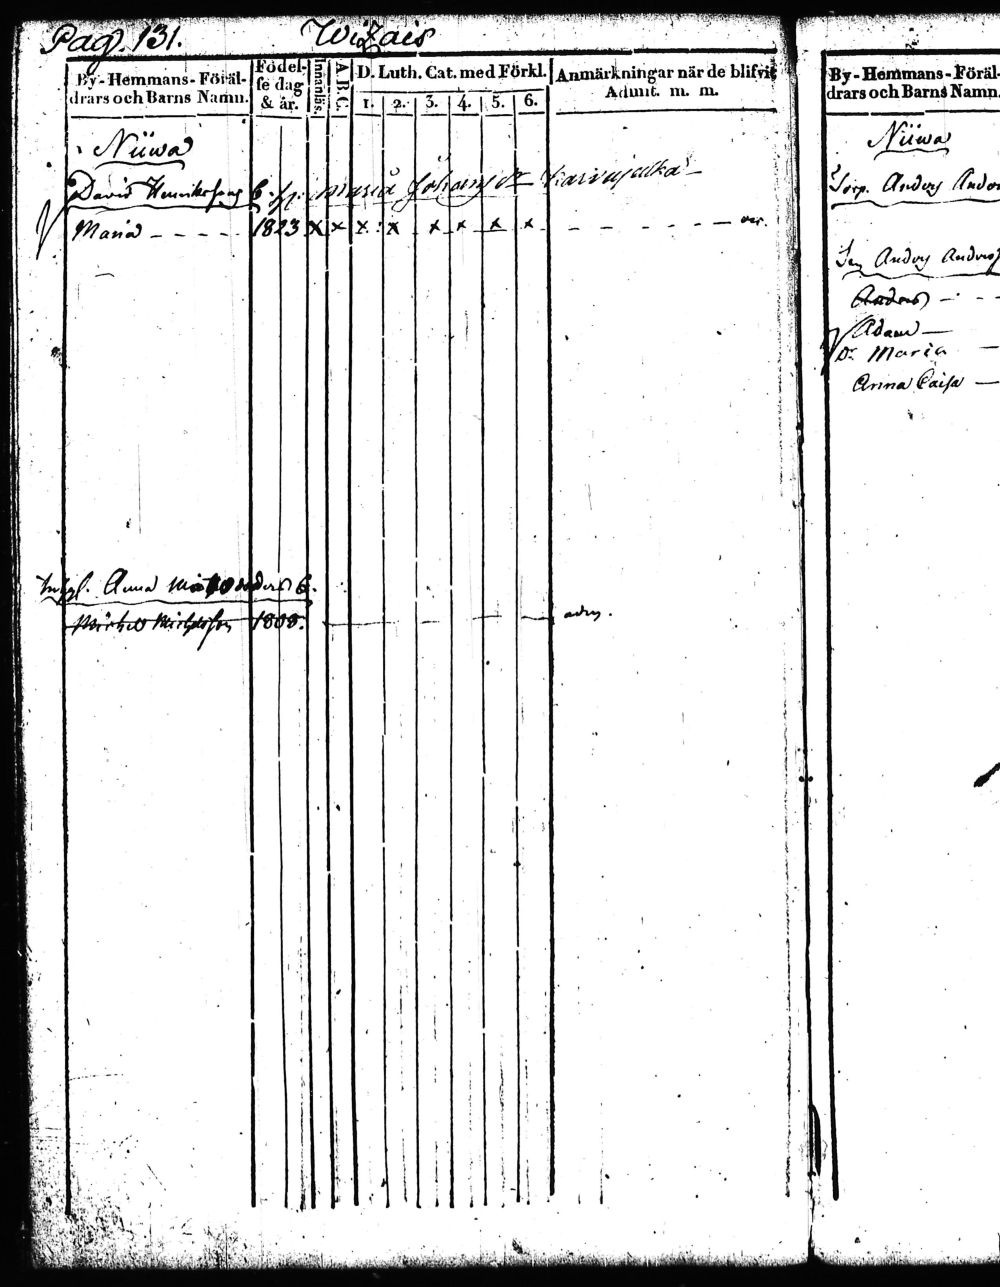 Pag. 131.
Wizais
By-Hemmans-Föräl-
drars och Barns Namn.
Födel-
se dag
& år.
Innanläs.
A.B.C.
D. Luth. Cat. med Förkl.
1. 2. 3. 4. 5. 6.
Anmärkningar när de blifvit
Admit. m. m.
Niiwa
David Henriksson
Maria Johans dr
Maria - - - - 1823 x x x x x x x x - - - - - -
Anna
Michel Michelsson 1808.
By-Hemmans-Föräl-
drars och Barns Namn.
Niiwa
Torp. Anders
Anders
Anders - - -
Adam -
Dr Maria -
Anna Caisa -